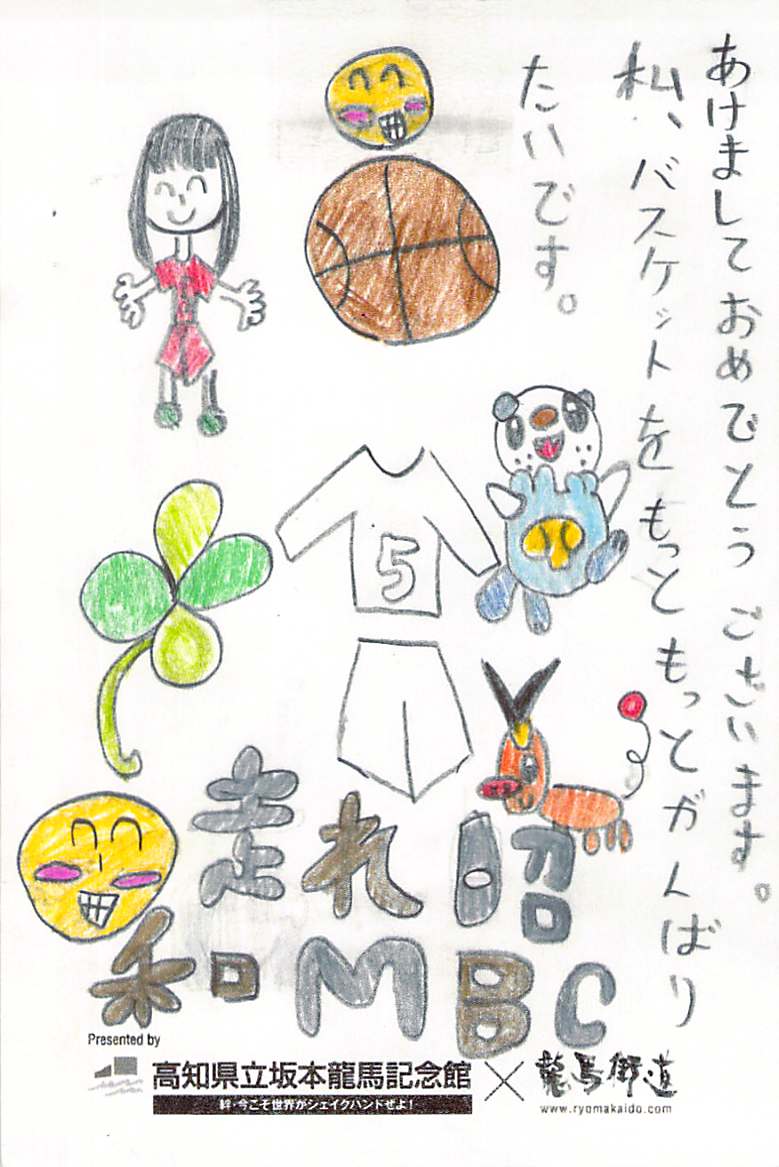 あけましておめでとうございます。
私、バスケットをもっともっとがんばり
たいです。
5
走れ昭
和MBC
Presented by
高知県立坂本龍馬記念館×龍馬街道
絆・今こそ世界がシェイクハンドせよ!
www.ryomakaido.com